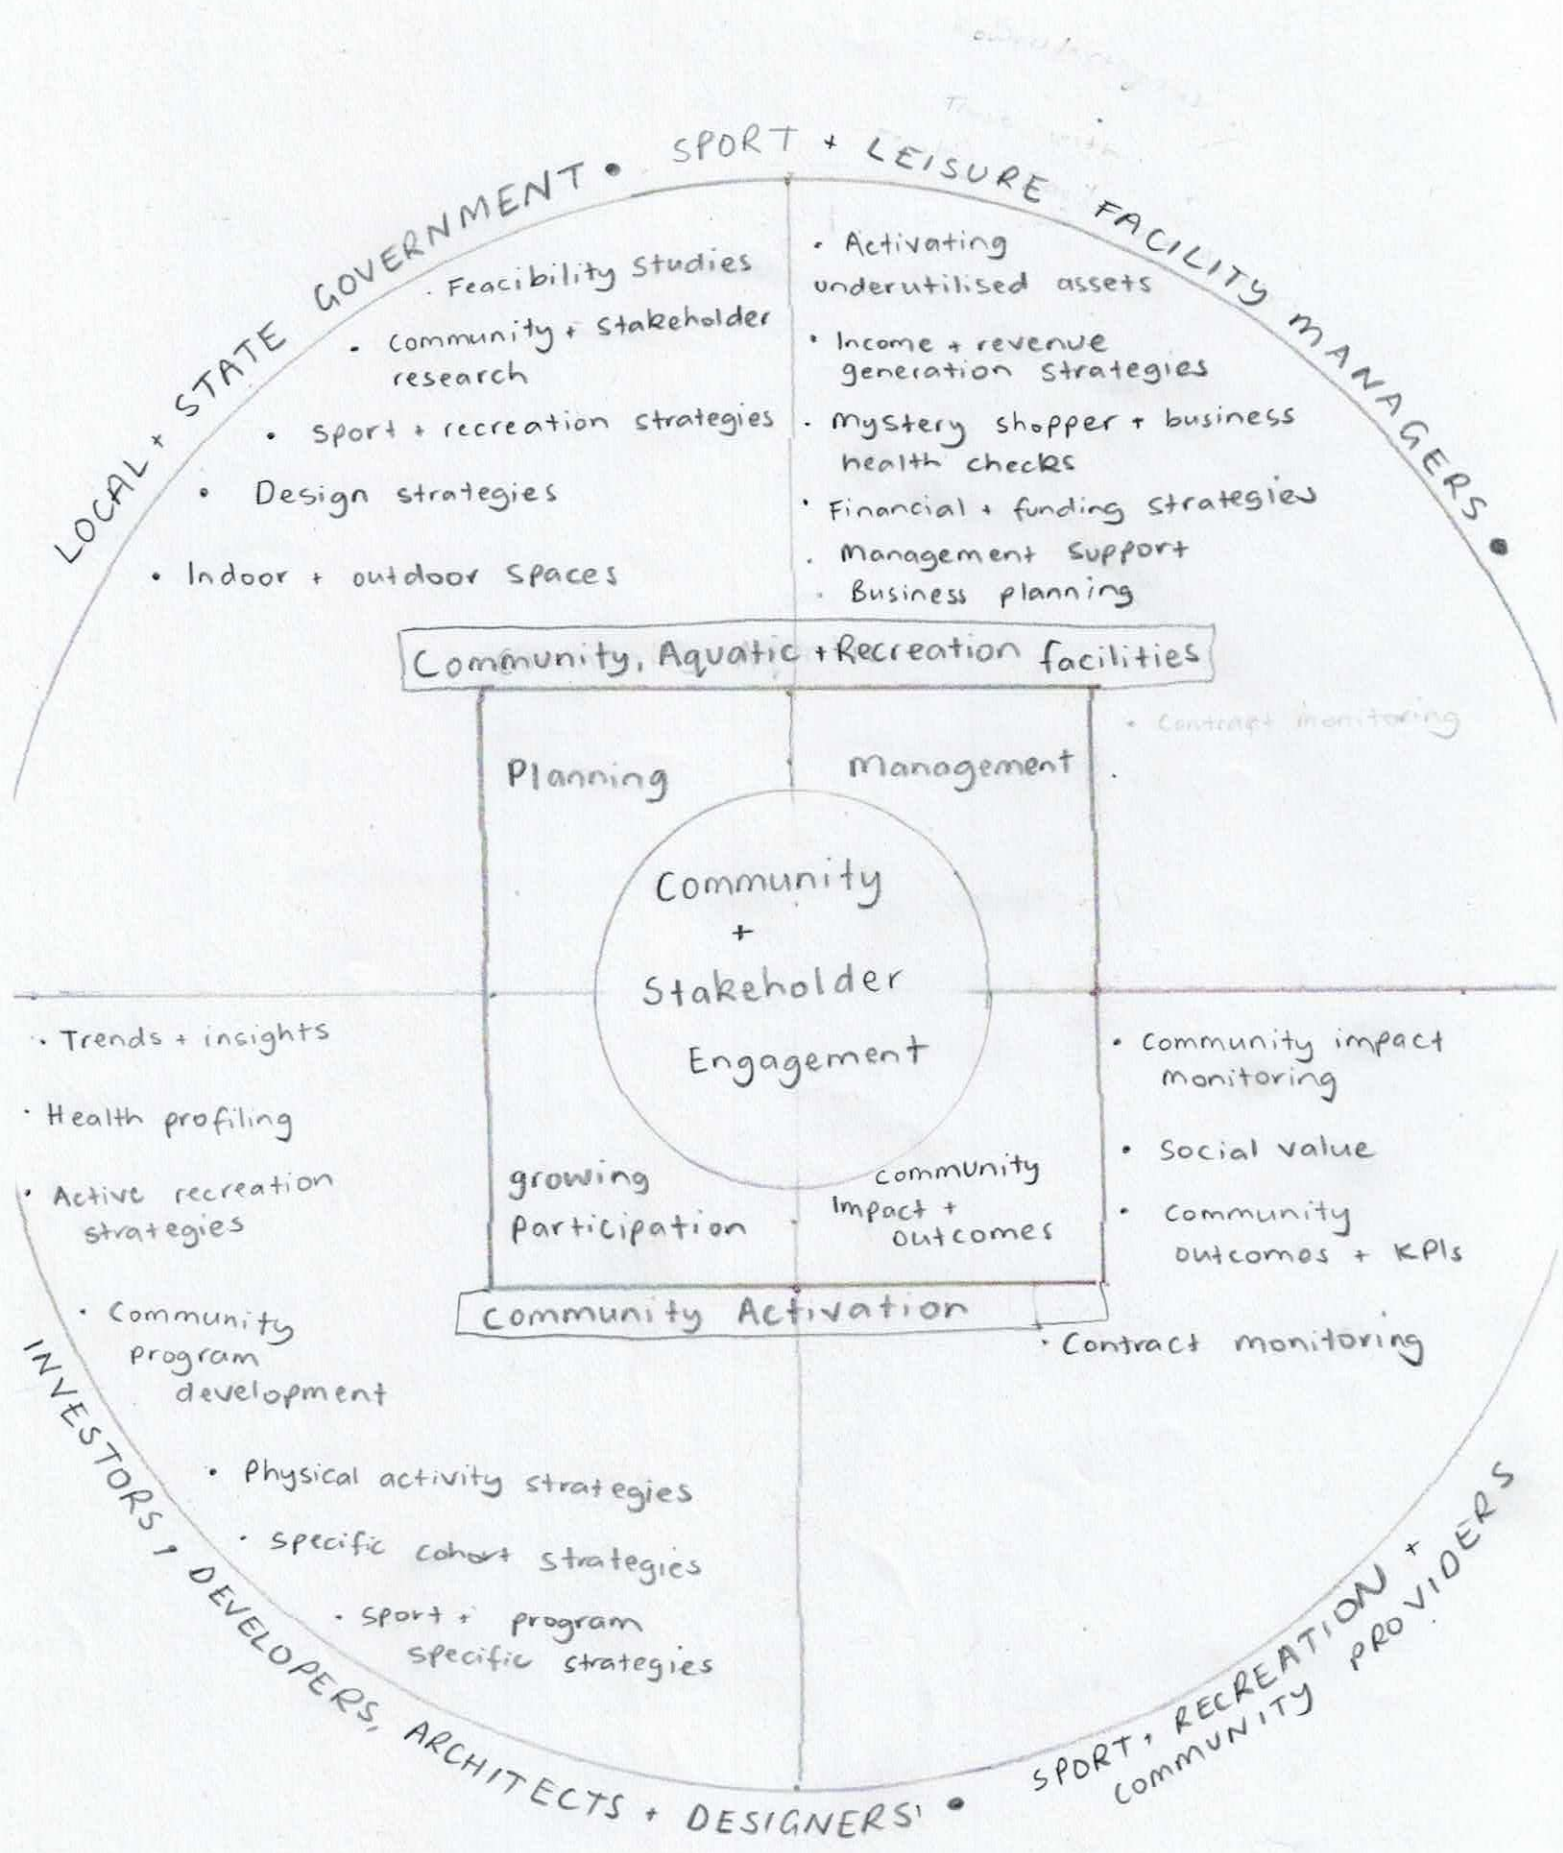 LOCAL + STATE GOVERNMENT •
SPORT + LEISURE FACILITY MANAGERS •
· Feacibility Studies
• Community + Stakeholder
research
• Sport + recreation strategies
• Design strategies
• Indoor + outdoor spaces
• Activating
underutilised assets
• Income + revenue
generation strategies
• Mystery shopper + business
health checks
• Financial + funding strategies
• Management support
• Business planning
Community, Aquatic + Recreation facilities
• Contract monitoring
Planning
Management
Community
+
Stakeholder
Engagement
growing
participation
community
Impact +
outcomes
Community Activation
• Trends + insights
• Health profiling
• Active recreation
strategies
• Community
program
development
• Physical activity strategies
• Specific cohort strategies
• Sport + program
specific strategies
• Community impact
monitoring
• Social value
• Community
outcomes + KPIs
• Contract monitoring
INVESTORS, DEVELOPERS, ARCHITECTS + DESIGNERS •
SPORT, RECREATION +
COMMUNITY PROVIDERS